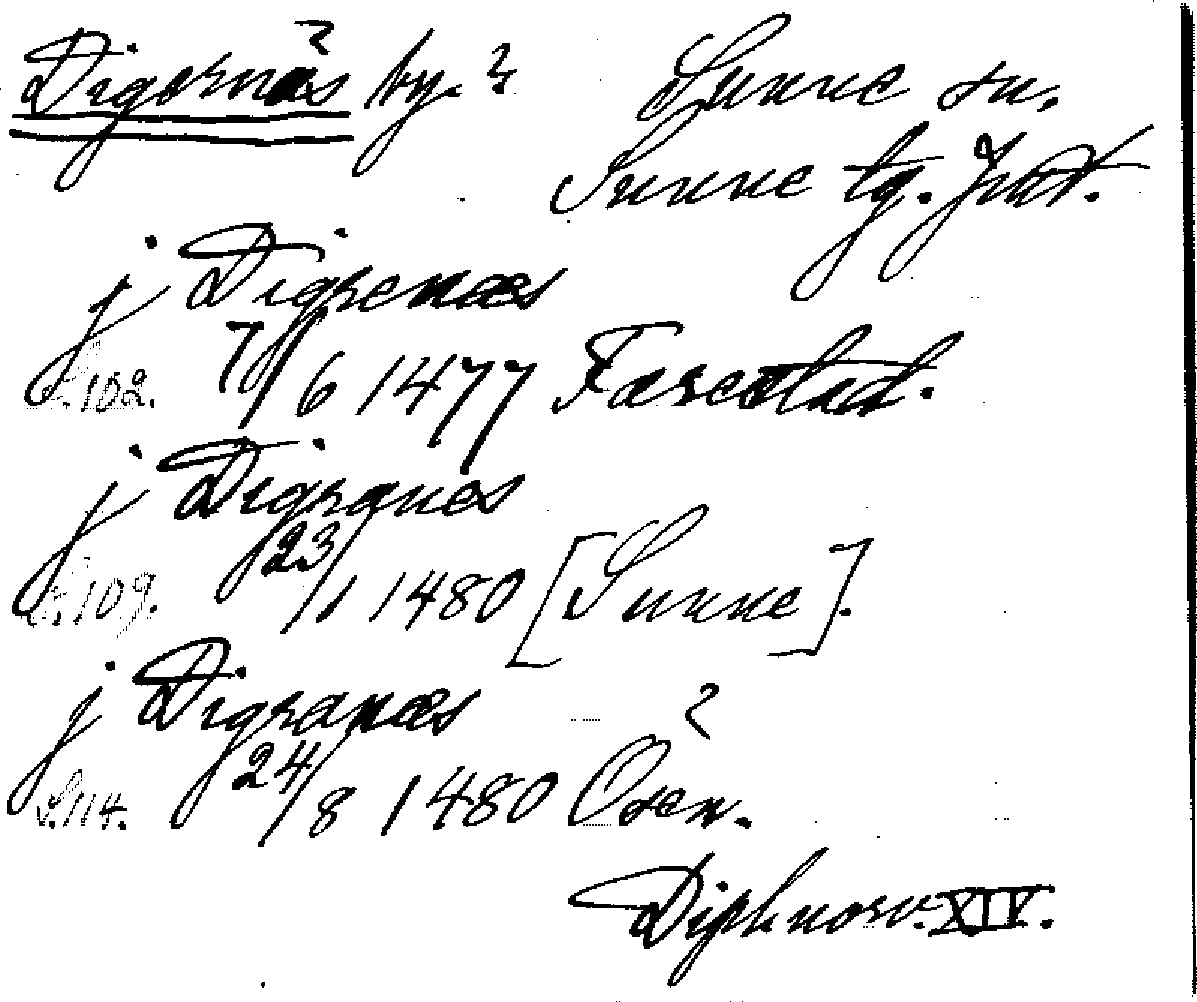 Digernäs by. Sunne sn.
Sunne tg. Jmt.
j Digrenæs
S. 102. 7/6 1477 Farestad.
j Digranes
S. 109. 23/1 1480 [Sunne].
j Digranæs ?
S. 114. 24/8 1480 Osen.
Diplnorv. XIV.